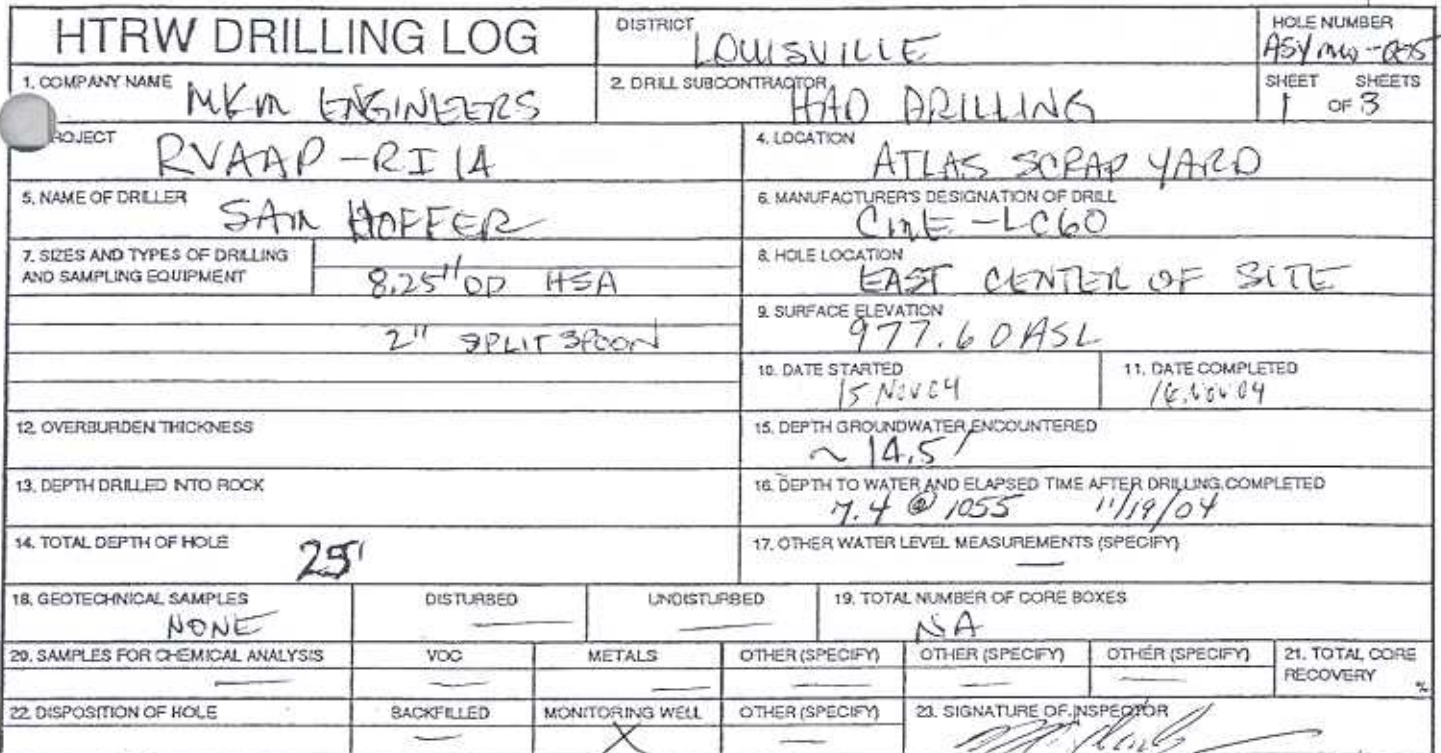 HTRW DRILLING LOG
DISTRICT
LOUISVILLE
HOLE NUMBER
ASYmw-005
1. COMPANY NAME
MKM ENGINEERS
2. DRILL SUBCONTRACTOR
HAD DRILLING
SHEET SHEETS
1 OF 3
ROJECT
RVAAP-RI 14
4. LOCATION
ATLAS SCRAP YARD
5. NAME OF DRILLER
SAM HOFFER
6. MANUFACTURER'S DESIGNATION OF DRILL
CME-LC60
7. SIZES AND TYPES OF DRILLING
AND SAMPLING EQUIPMENT
8.25" OD HSA
2" SPLIT SPOON
8. HOLE LOCATION
EAST CENTER OF SITE
9. SURFACE ELEVATION
977.60 ASL
10. DATE STARTED
15 Nov 04
11. DATE COMPLETED
Nov 04
12. OVERBURDEN THICKNESS
15. DEPTH GROUNDWATER ENCOUNTERED
~ 14.5'
13. DEPTH DRILLED INTO ROCK
16. DEPTH TO WATER AND ELAPSED TIME AFTER DRILLING COMPLETED
7.4 @ 1055 11/19/04
14. TOTAL DEPTH OF HOLE
25'
17. OTHER WATER LEVEL MEASUREMENTS (SPECIFY)
—
18. GEOTECHNICAL SAMPLES
NONE
DISTURBED
—
UNDISTURBED
—
19. TOTAL NUMBER OF CORE BOXES
NA
20. SAMPLES FOR CHEMICAL ANALYSIS
—
VOC
—
METALS
—
OTHER (SPECIFY)
—
OTHER (SPECIFY)
—
OTHER (SPECIFY)
—
21. TOTAL CORE
RECOVERY
%
22. DISPOSITION OF HOLE
BACKFILLED
—
MONITORING WELL
X
OTHER (SPECIFY)
—
23. SIGNATURE OF INSPECTOR